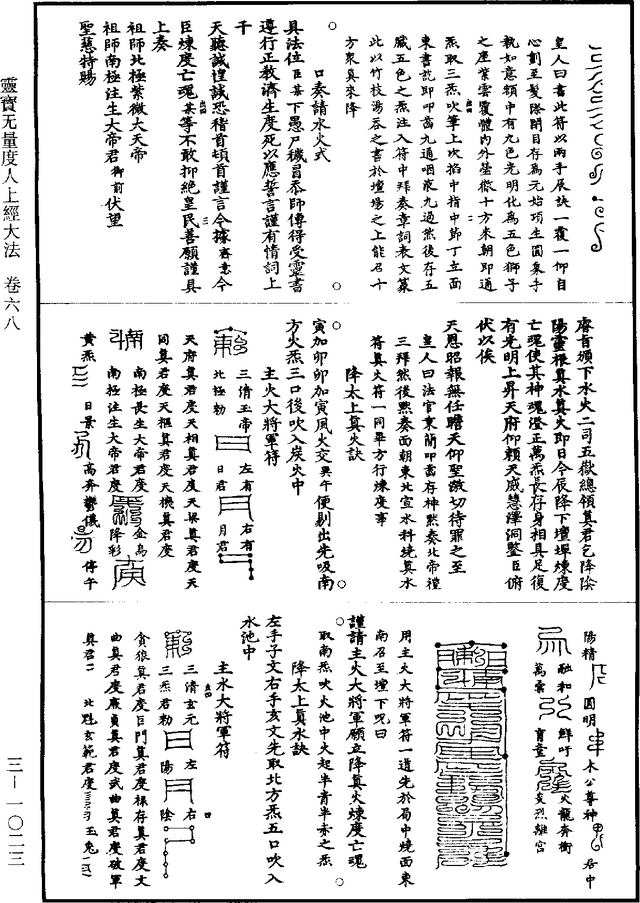 皇人曰書此符以兩手辰訣一覆一仰自
心劃至髮際閉目存為元始項生圓象手
執如意頭中有九色光明化為五色獅子
之座業雲覆體內外基徹十方來朝即通
炁取三炁吹筆上次掐中指中節丁立面
東書訖即叩齒九通咽液九過然後存五
臟五色之炁注入符中拜奏章詞表文篆
此以竹枝湯吞之書於壇場之上能召十
方眾真來降
口奏請水火式
具法位臣某下愚尸穢冒忝師傳得受靈書
遵行正教濟生度死以應誓言謹有情詞上
千
天聽誠惶誠恐稽首頓首謹言今據齋意今
臣煉度亡魂某等不敢抑絕皇民善願謹具
上奏
祖師北極紫微大天帝
祖師南極注生大帝君御前伏望
聖慈特賜
睿旨頒下水火二司五嶽總領真君乞降陰
陽靈根真水真火即日今辰降下壇墠煉度
亡魂使其神魂澄正萬炁長存身相具足復
有光明上昇天府仰賴天威慧澤洞鑒臣俯
伏以俟
天恩昭報無任瞻天仰聖激切待罪之至
皇人曰法官秉簡叩齒存神默奏北帝徨
三拜然後默奏面朝東北宣水科燒真水
符真火符一同畢方行煉度事
降太上真火訣
寅加卯卯加寅風火交巽午便剔出先吸南
方火炁三口後吹入炭火中
主火大將軍符
三清玉帝 左有 右有
北極勑 日君 月君
天府真君度天相真君度天梁真君度天
同真君度天樞真君度天機真君度
南極長生大帝君度 金烏
南極注生大帝君度 降彩
黃炁 日景 高奔鬱儀 停午
陽精 圓明 木公尊神 居中
融和 鮮吁 火龍奔衝
萬雲 育嬰 炎烈離宮
用主火大將軍符一道先於局中燒面東
南召至壇下咒曰
謹請主火大將軍願立降真火煉度亡魂
取南炁吹火池中火起半青半赤之炁
降太上真水訣
左手子文右手亥文先取北方炁五口吹入
水池中
主水大將軍符
三清玄元 左 右
三炁君勑 陽 陰
貪狼真君度巨門真君度祿存真君度文
曲真君度廉貞真君度武曲真君度破軍
真君 北魁玄範君度 玉兔
靈寶无量度人上經大法 卷六八
三—一〇二三